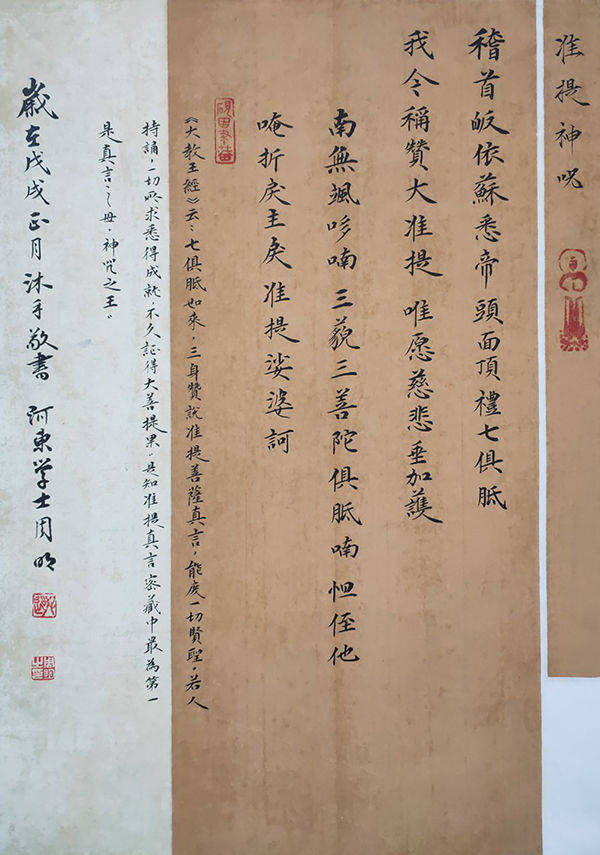 准提神呪
稽首皈依蘇悉帝 頭面頂禮七俱胝
我今稱贊大准提 唯愿慈悲垂加護
南無颯哆喃 三藐三菩陀 俱胝喃 怛侄他
唵折戾主戾准提娑婆訶
《大教王經》云：七俱胝如來，三身贊説准提菩薩真言，能度一切賢聖，若人
持誦，一切所求悉得成就，不久証得大菩提果。是知准提真言密藏中最為第一
是真言之母，神咒之王。
歲在戊戌正月沐手敬書 河東学士周明